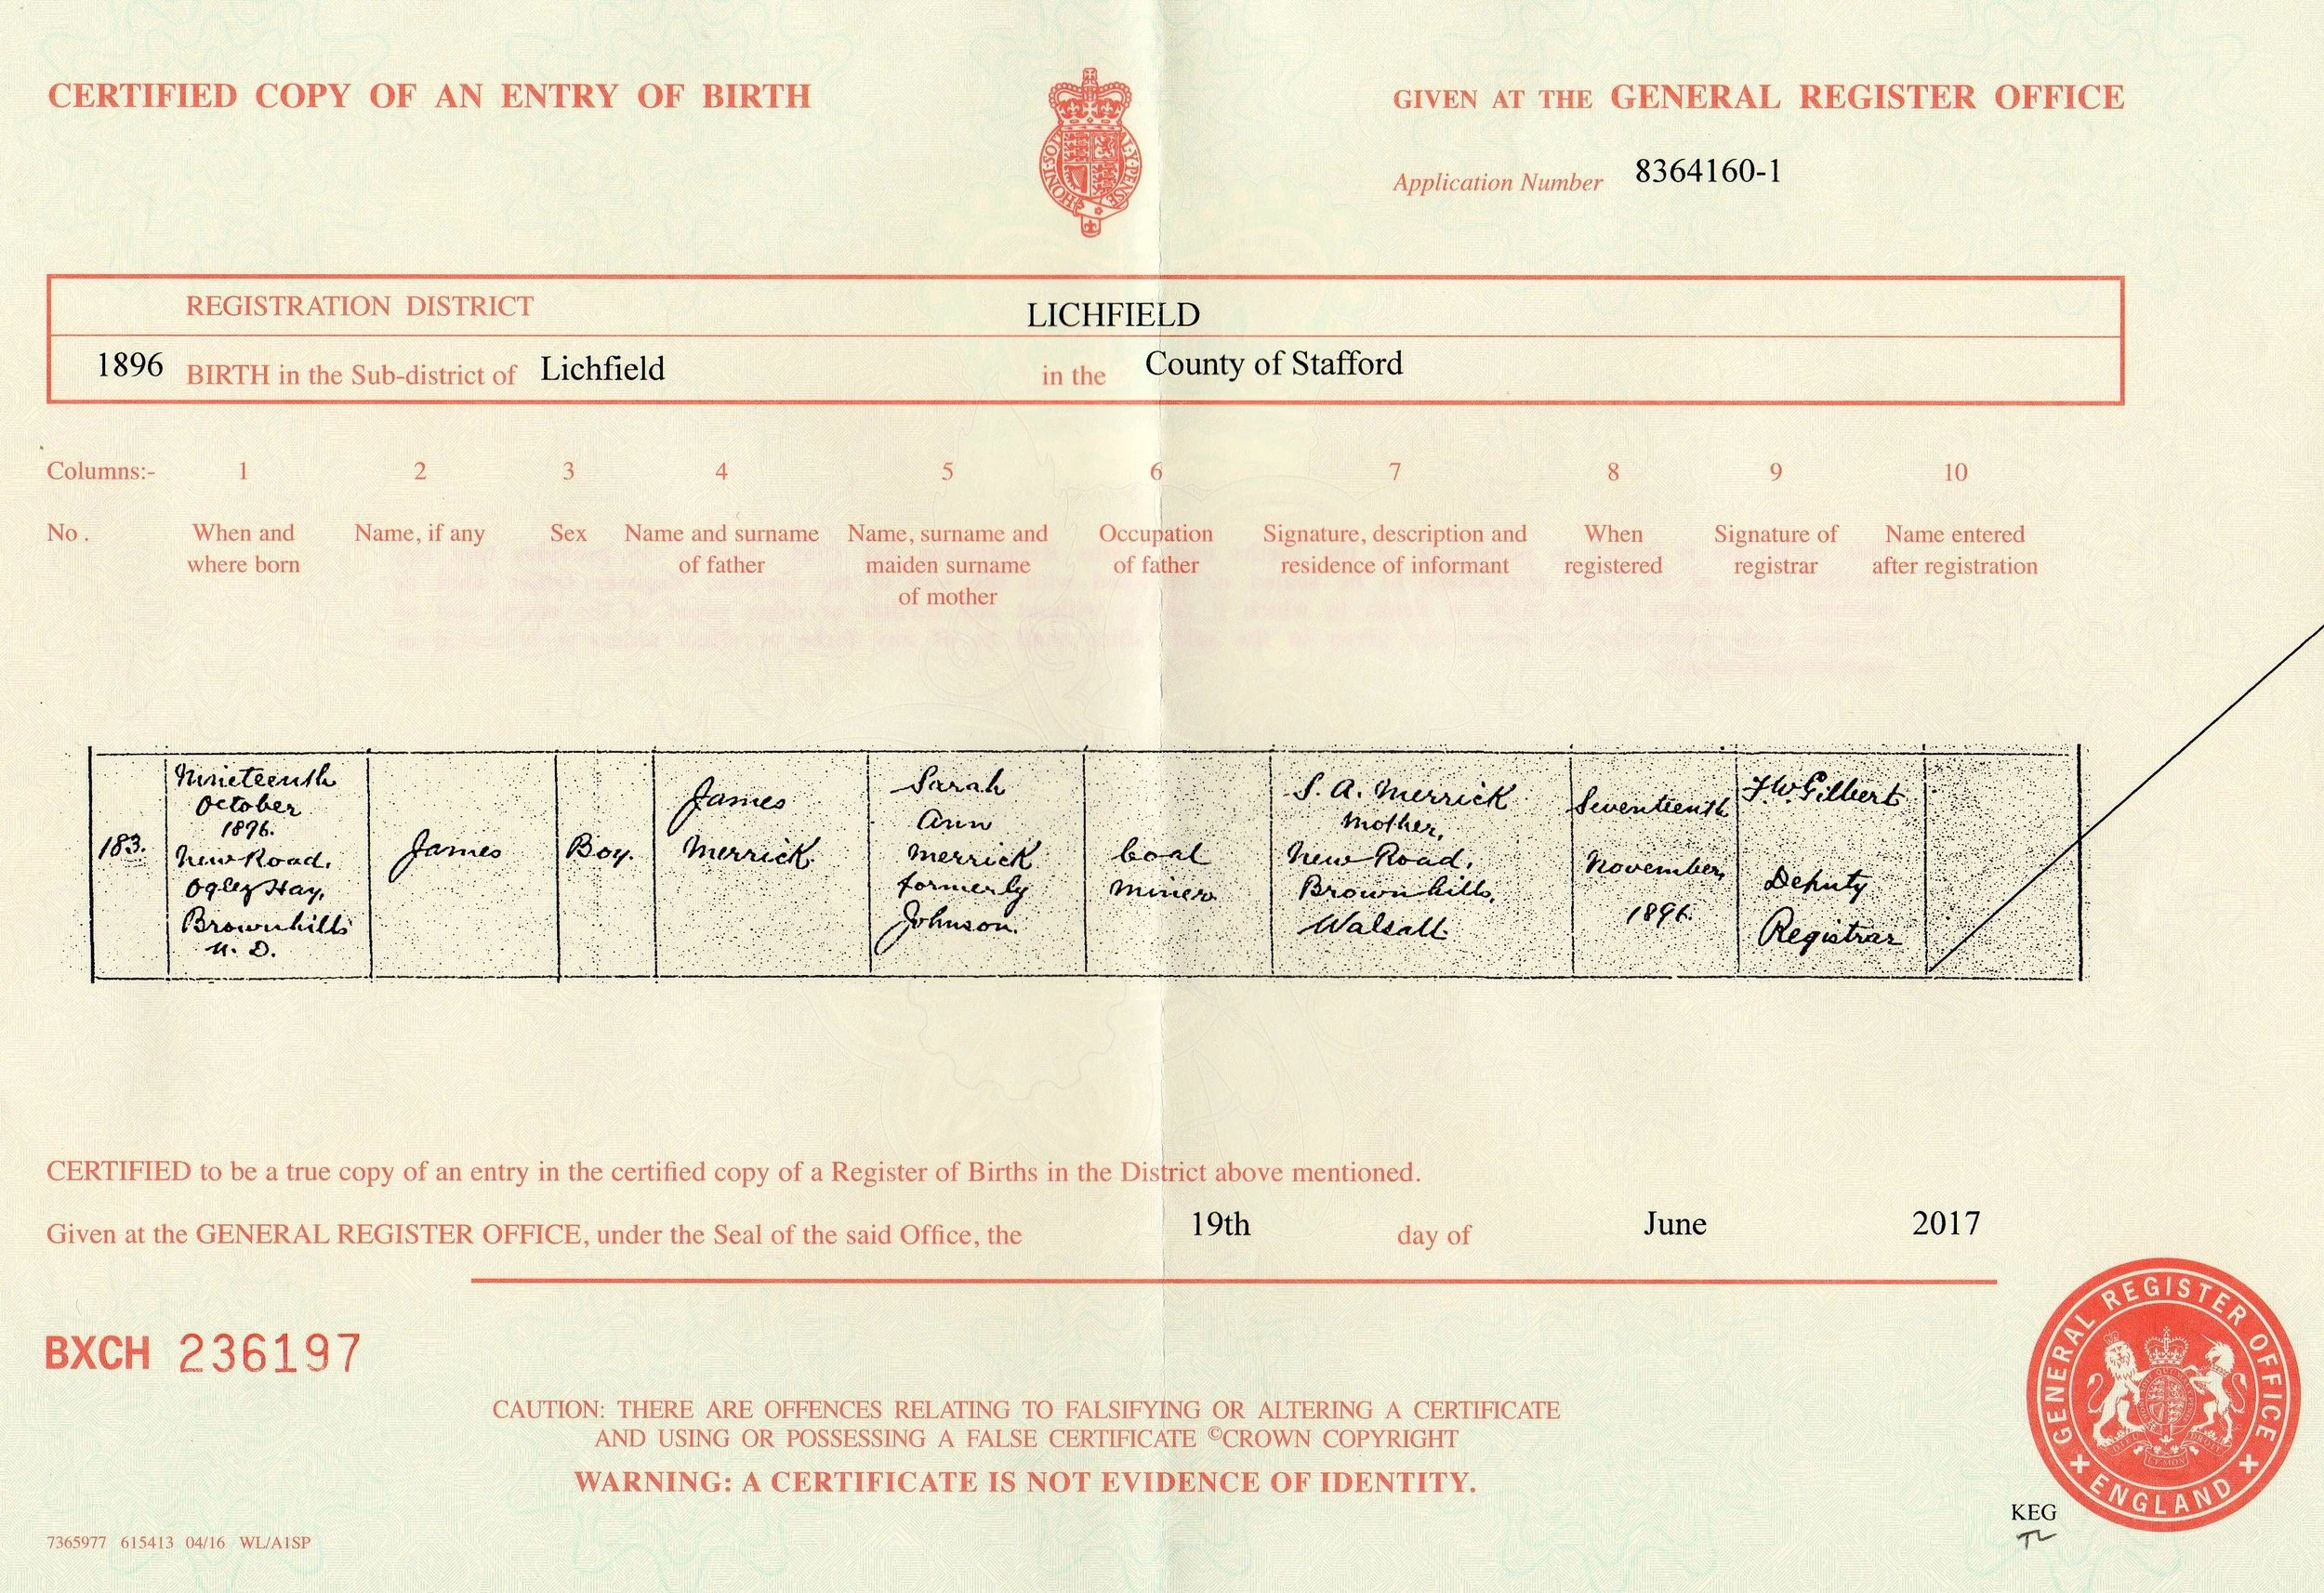 CERTIFIED COPY OF AN ENTRY OF BIRTH
GIVEN AT THE GENERAL REGISTER OFFICE
HONI·SOIT AL·Y·PENSE
Application Number 8364160-1
REGISTRATION DISTRICT LICHFIELD
1896 BIRTH in the Sub-district of Lichfield in the County of Stafford
Columns:- 1 2 3 4 5 6 7 8 9 10
No. When and where born
Name, if any
Sex
Name and surname of father
Name, surname and maiden surname of mother
Occupation of father
Signature, description and residence of informant
When registered
Signature of registrar
Name entered after registration
183.
Nineteenth
October
1896.
New Road,
Ogley Hay,
Brownhills
U. D.
James
Boy.
James
Merrick
Sarah
Ann
Merrick
formerly
Johnson.
Coal
Miner
S. A. Merrick
Mother,
New Road,
Brownhills,
Walsall.
Seventeenth
November,
1896.
F W Gilbert
Deputy
Registrar
CERTIFIED to be a true copy of an entry in the certified copy of a Register of Births in the District above mentioned.
Given at the GENERAL REGISTER OFFICE, under the Seal of the said Office, the 19th day of June 2017
BXCH 236197
CAUTION: THERE ARE OFFENCES RELATING TO FALSIFYING OR ALTERING A CERTIFICATE
AND USING OR POSSESSING A FALSE CERTIFICATE ©CROWN COPYRIGHT
WARNING: A CERTIFICATE IS NOT EVIDENCE OF IDENTITY.
GENERAL REGISTER OFFICE
ENGLAND
KEG
7365977 615413 04/16 WL/A1SP